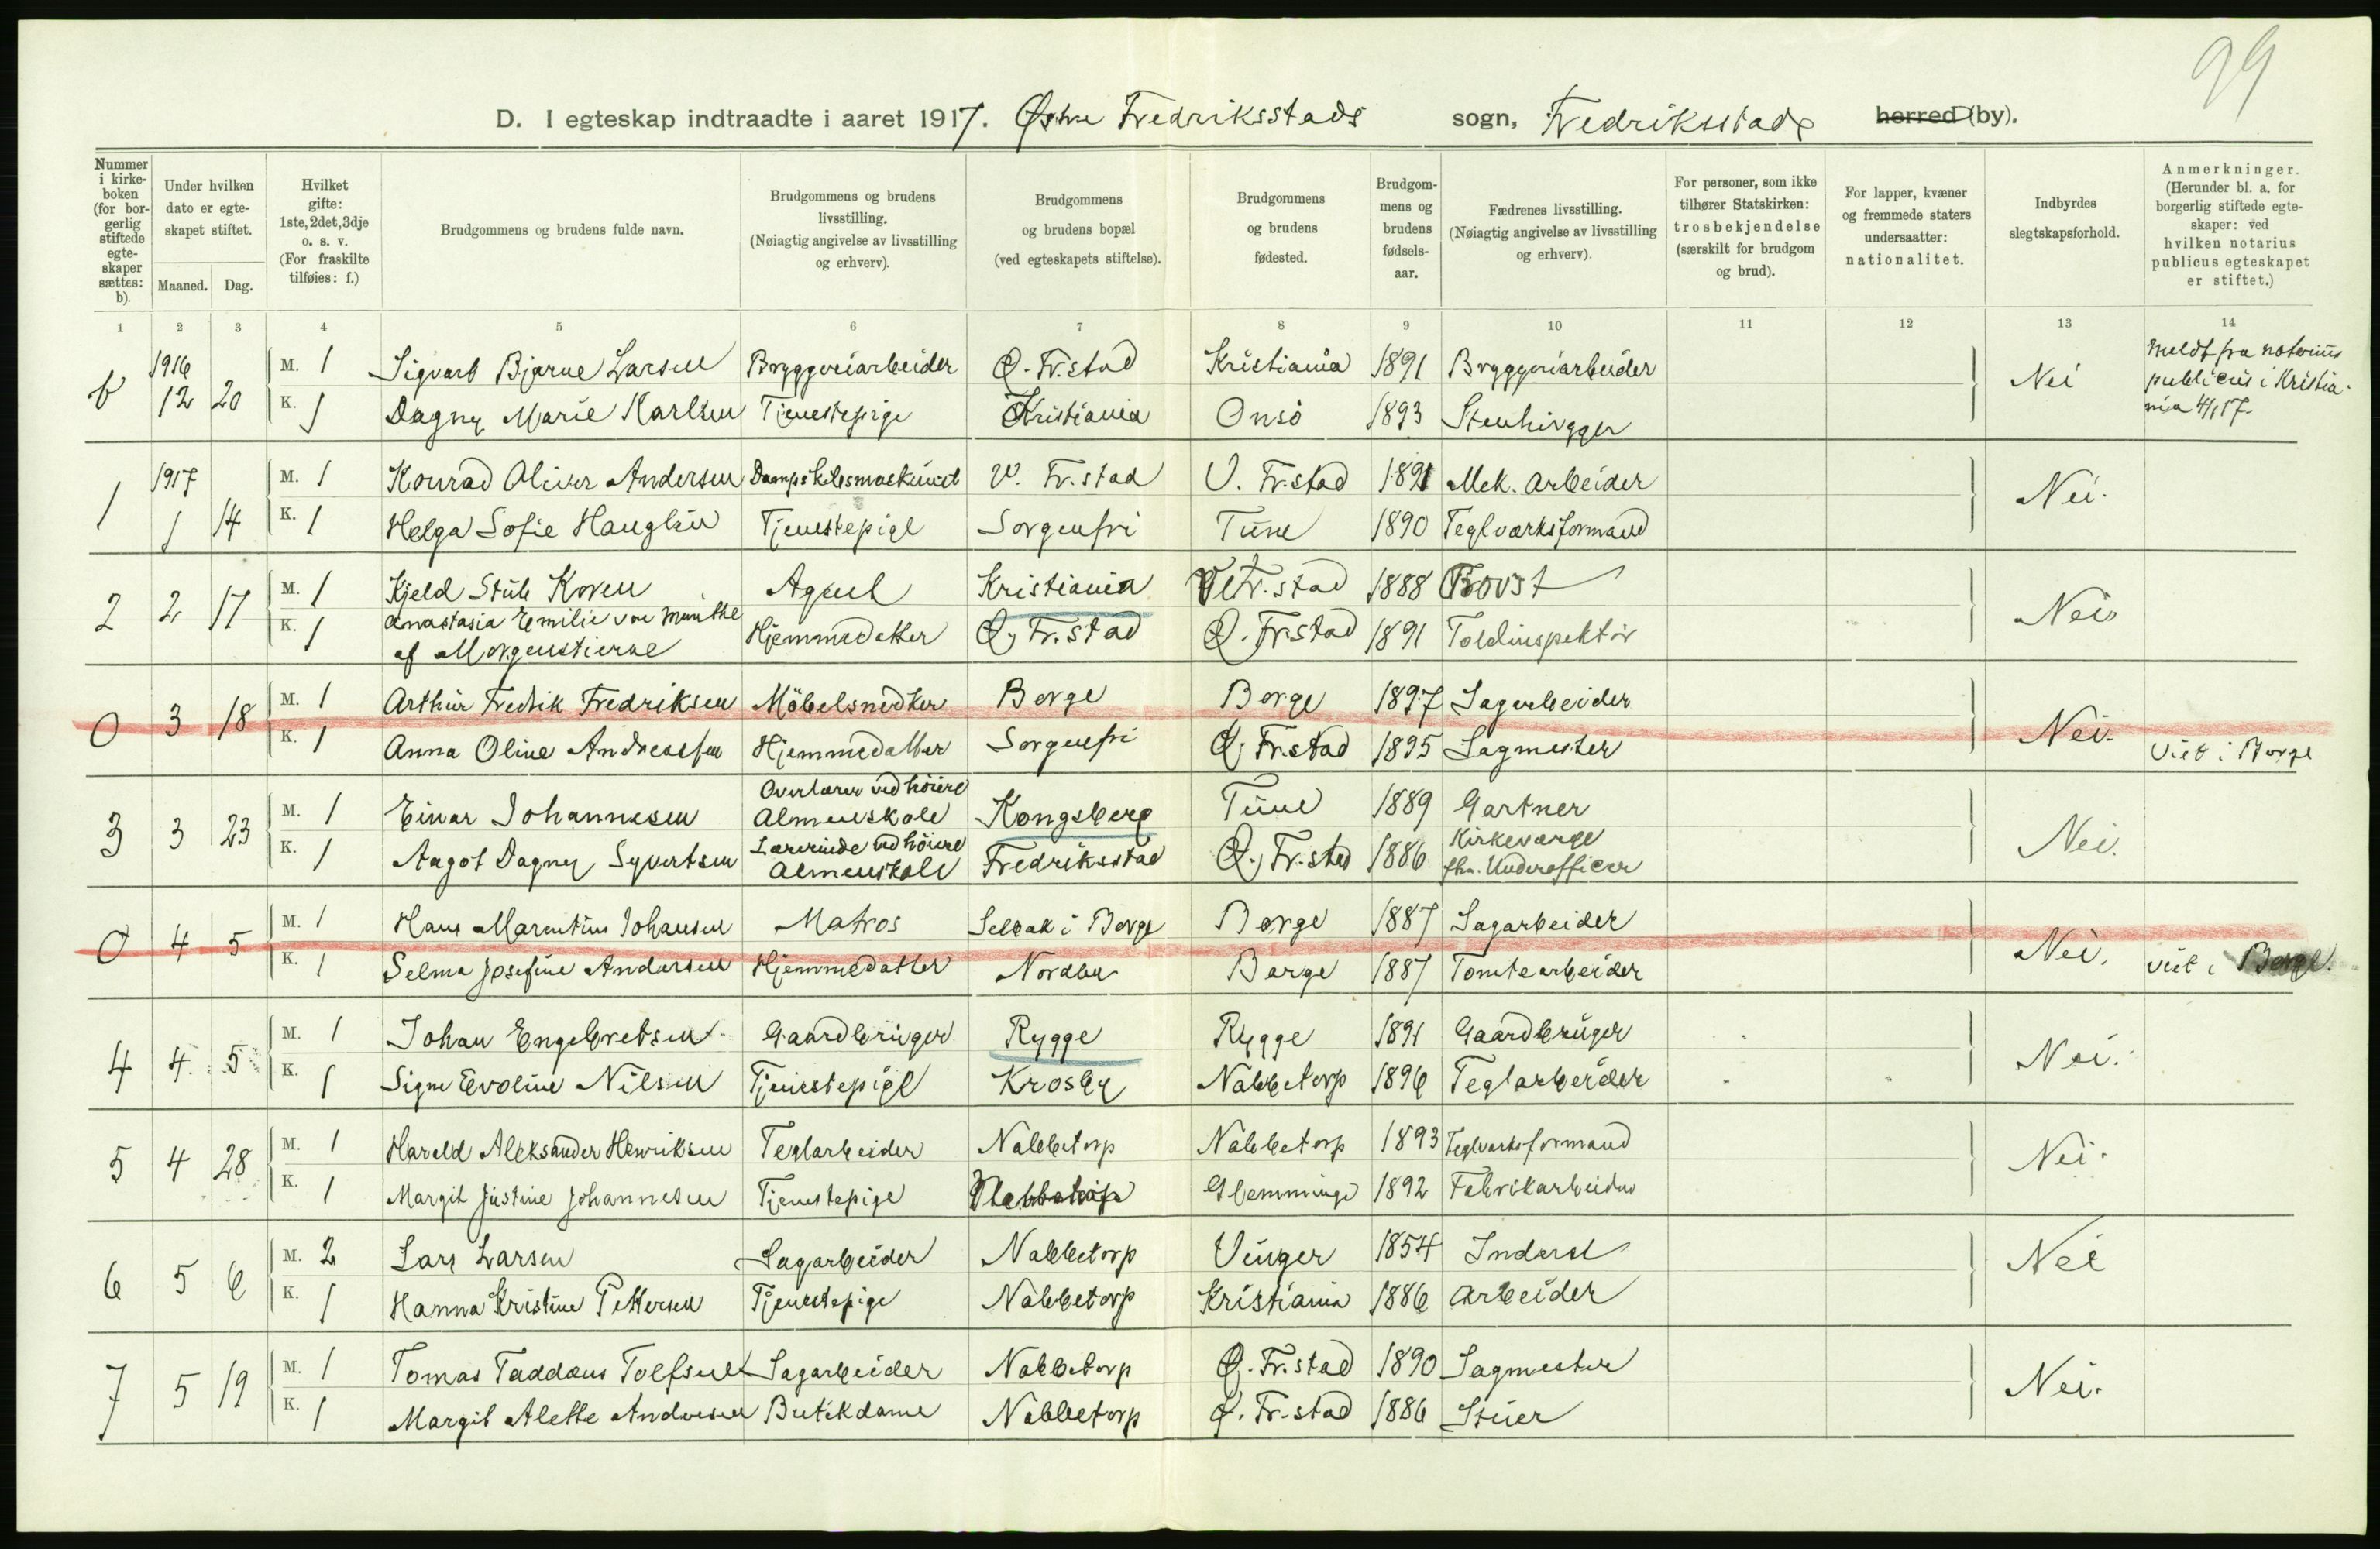 99
D. I egteskap indtraadte i aaret 1917. Østre Fredriksstads sogn, Fredriksstads herred (by).
Nummer i kirkeboken (for borgerlig stiftede egteskaper sættes: b).
Under hvilken dato er egteskapet stiftet.
Maaned. Dag.
Hvilket gifte: 1ste, 2det, 3dje o. s. v. (For fraskilte tilføies: f.)
Brudgommens og brudens fulde navn.
Brudgommens og brudens livsstilling. (Nøiagtig angivelse av livsstilling og erhverv).
Brudgommens og brudens bopæl (ved egteskapets stiftelse).
Brudgommens og brudens fødested.
Brudgommens og brudens fødselsaar.
Fædrenes livsstilling. (Nøiagtig angivelse av livsstilling og erhverv).
For personer, som ikke tilhører Statskirken: trosbekjendelse (særskilt for brudgom og brud).
For lapper, kvæner og fremmede staters undersaatter: nationalitet.
Indbyrdes slegtskapsforhold.
Anmerkninger. (Herunder bl. a. for borgerlig stiftede egteskaper: ved hvilken notarius publicus egteskapet er stiftet.)
1 2 3 4 5 6 7 8 9 10 11 12 13 14
b 1916 12 20 M. 1 Sigvart Bjarne Larsen Bryggeriarbeider Ø. Fr.stad Kristiania 1891 Bryggeriarbeider Nei Meldt fra notarius publicus i Kristiania 4/1 17.
K. 1 Dagny Marie Karlsen Tjenestepige Kristiania Onsö 1893 Stenhugger
1 1917 1 14 M. 1 Konrad Oliver Andersen Dampskibsmaskinist V. Fr.stad V. Fr.stad 1891 Mek. Arbeider Nei.
K. 1 Helga Sofie Hauglin Tjenestepige Sorgenfri Tune 1890 Teglværksformand
2 2 17 M. 1 Kjeld Stub Koren Agent Kristiania V. Fr.stad 1888 Provst Nei.
K. 1 Anastasia Emilie von Munthe af Morgenstierne Hjemmedatter Ø. Fr.stad Ø. Fr.stad 1891 Toldinspektör
0 3 18 M. 1 Arthur Fredrik Fredriksen Möbelsnedker Borge Borge 1897 Sagarbeider Nei. Viet i Borge
K. 1 Anna Oline Andreassen Hjemmedatter Sorgenfri Ø. Fr.stad 1895 Sagmester
3 3 23 M. 1 Einar Johannesen Overlærer ved höiere Almenskole Kongsberg Tune 1889 Gartner Nei.
K. 1 Aagot Dagny Syvertsen Lærerinde ved höiere Almenskole Fredriksstad Ø. Fr.stad 1886 Kirkeværge fhv. Underofficer
0 4 5 M. 1 Hans Marentius Johansen Matros Selbak i Borge Borge 1887 Sagarbeider Nei. viet i Borge.
K. 1 Selma Josefine Andersen Hjemmedatter Nordby Borge 1887 Tomtearbeider
4 4 5 M. 1 Johan Engebretsen Gaardbruger Rygge Rygge 1891 Gaardbruger Nei.
K. 1 Signe Evoline Nilsen Tjenestepige Krosby Nabbetorp 1896 Teglarbeider
5 4 28 M. 1 Harald Aleksander Henriksen Teglarbeider Nabbetorp Nabbetorp 1893 Teglværksformand Nei.
K. 1 Margit Justine Johannesen Tjenestepige Nabbetorp Glemminge 1892 Fabrikarbeider
6 5 6 M. 2 Lars Larsen Sagarbeider Nabbetorp Vinger 1854 Inderst Nei
K. 1 Hanna Kristine Pettersen Tjenestepige Nabbetorp Kristiania 1886 Arbeider
7 5 19 M. 1 Tomas Taddæus Tollefsen Sagarbeider Nabbetorp Ø. Fr.stad 1890 Sagmester Nei.
K. 1 Margit Alette Andresen Butikdame Nabbetorp Ø. Fr.stad 1886 Stuer